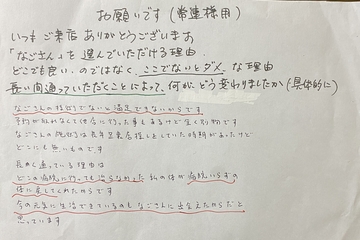 お願いです(常連様用)
いつもご来店ありがとうございます
「なごさん」を選んでいただける理由
どこでも良いのではなく、ここでないとダメ、な理由
長い間通っていただくことによって、何が、どう変わりましたか(具体的に)
なごさんの技術でないと満足できないからです
予約が取れなくて他店に行った事もあるけど全く別物です
なごさんの院では長年
どこにも無いものです
長年し通っている理由は
どこの病院に行っても治らなかった 私の体が病院いらずの
体に戻してくれたからです
今の元気に生活できているのもなごさんに出会えたからだと
思っています